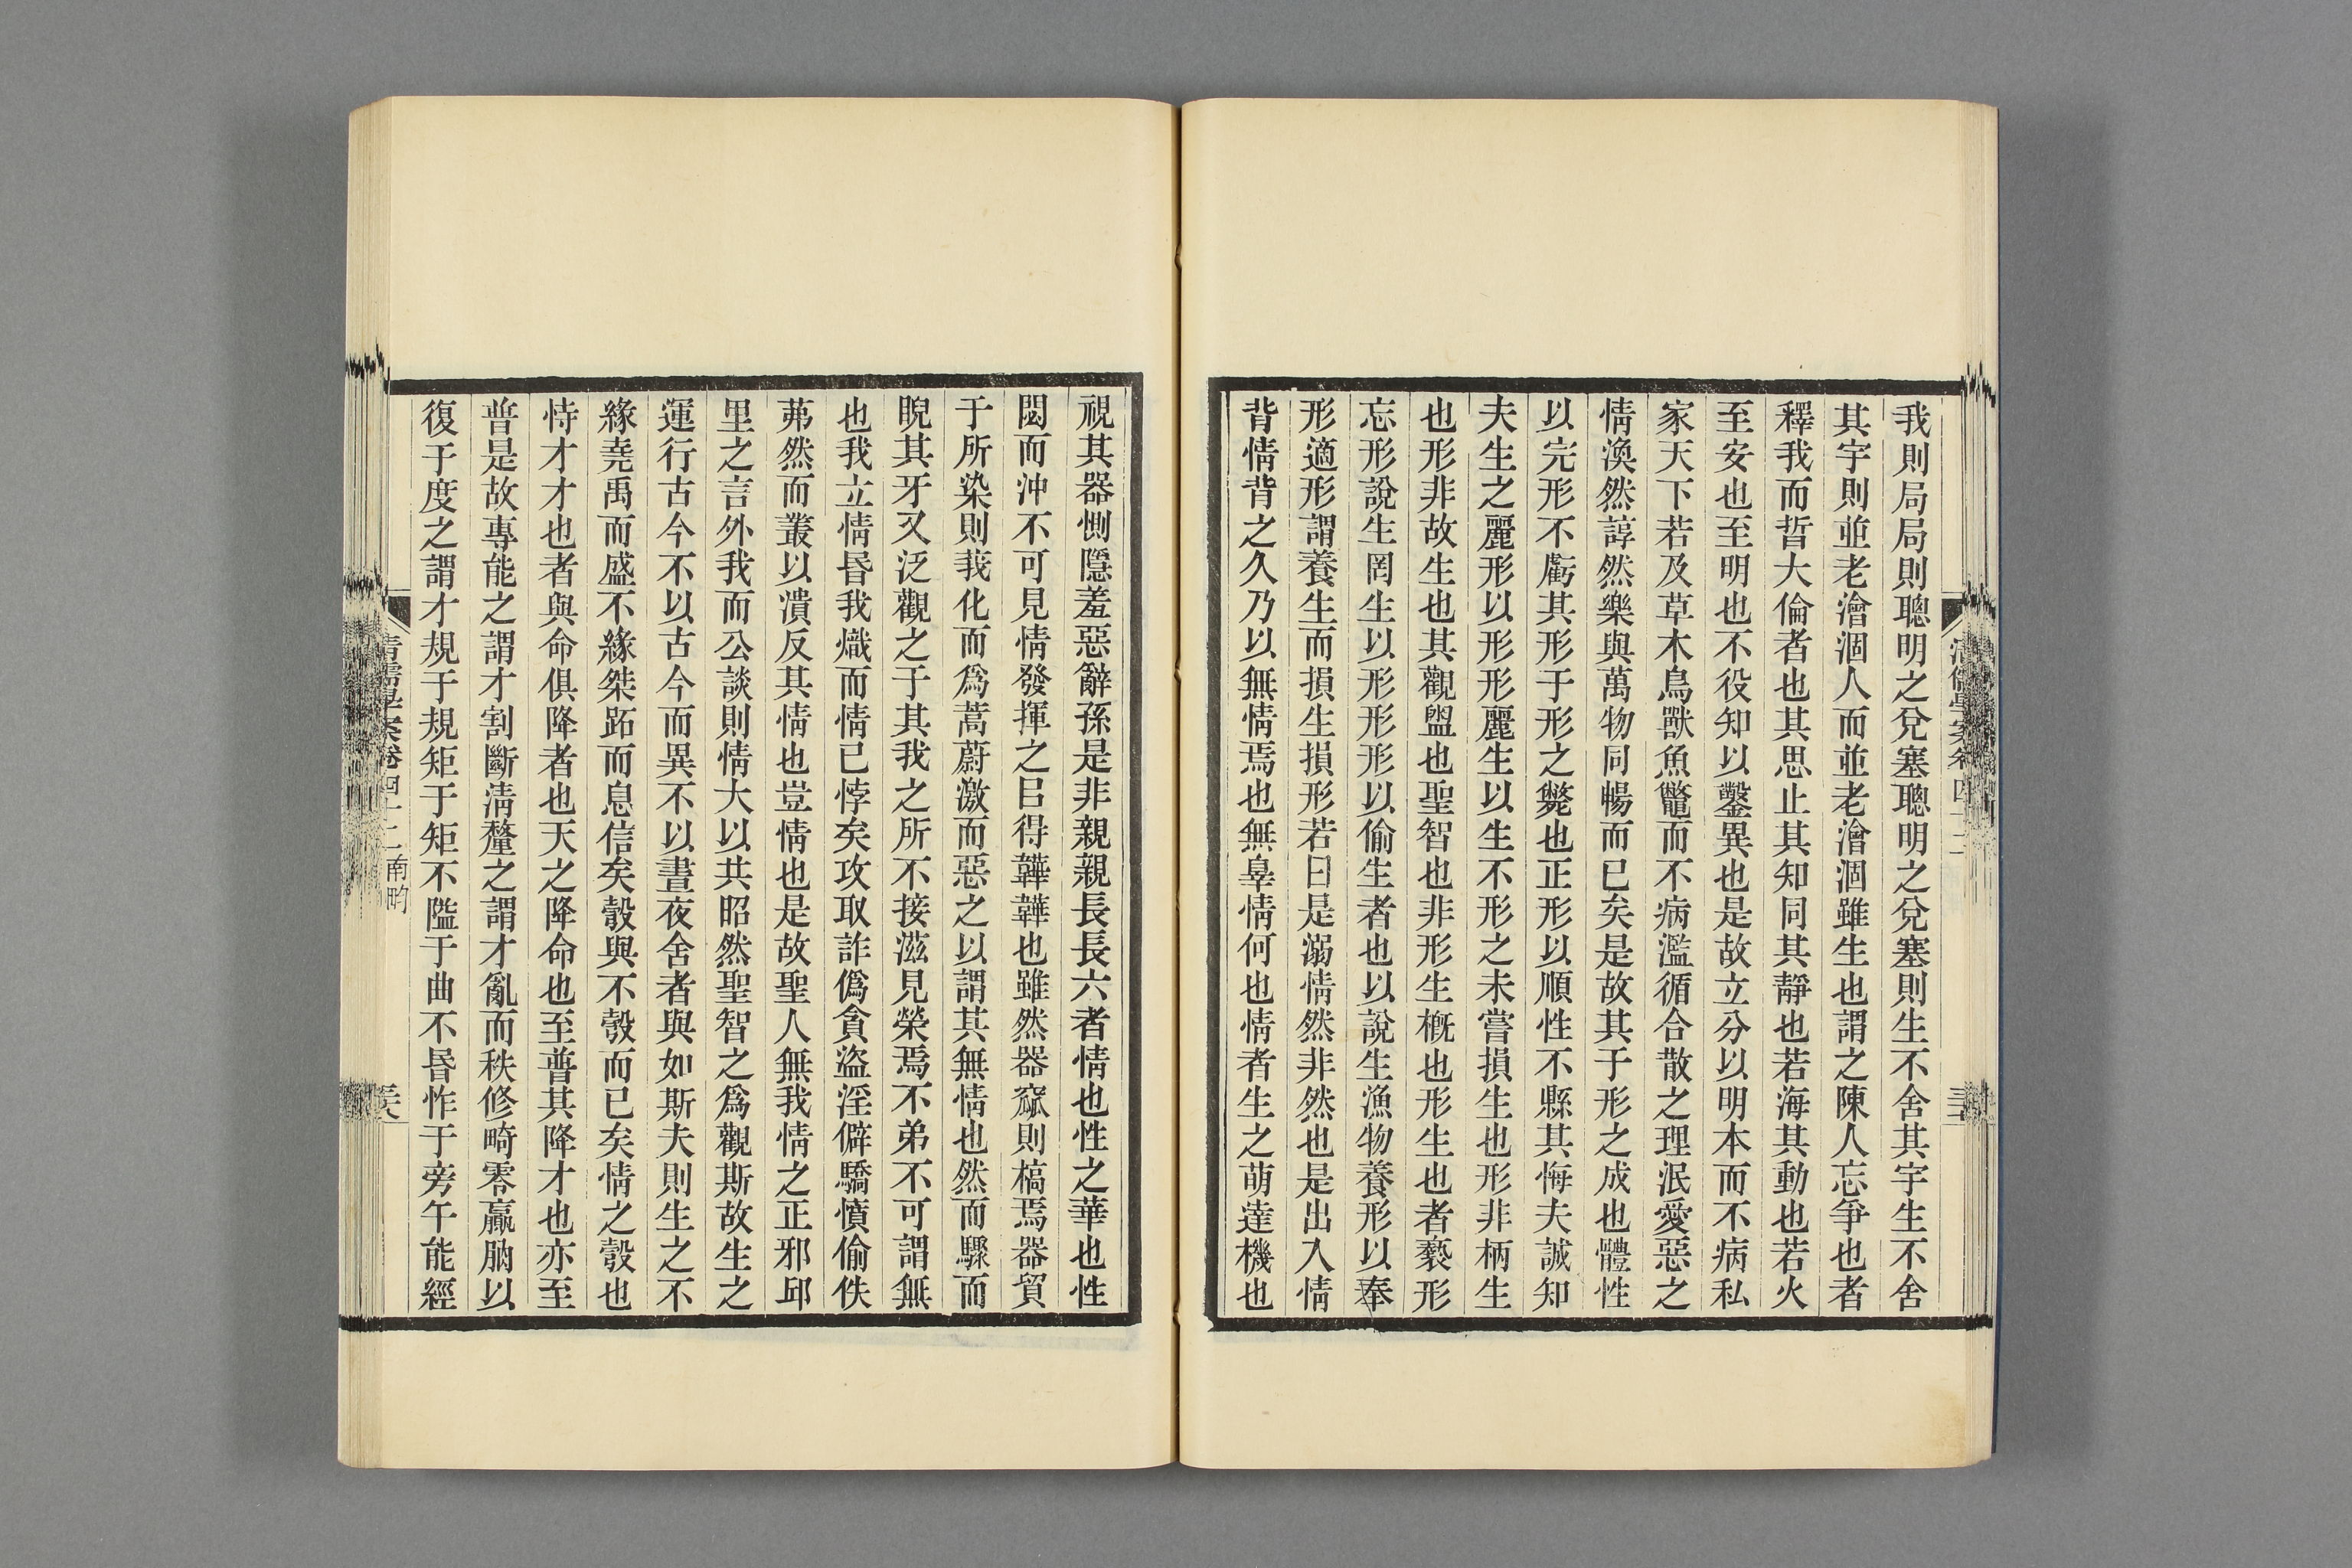 我則局局則聰明之兌塞聰明之兌塞則生不舍其宇生不舍
其宇則並老澮涸人而並老澮涸雖生也謂之陳人忘爭也者
釋我而晢大倫者也其思止其知同其靜也若海其動也若火
至安也至明也不役知以鑿異也是故立分以明本而不病私
家天下若及草木鳥獸魚鼈而不病濫循合散之理泯愛惡之
情渙然諄然樂與萬物同暢而已矣是故其于形之成也體性
以完形不虧其形于形之斃也正形以順性不縣其悔夫誠知
夫生之麗形以形形麗生以生不形之未嘗損生也形非柄生
也形非故生也其觀盥也聖智也非形生槪也形生也者褻形
忘形說生罔生以形形形以偷生者也以說生漁物養形以奉
形適形謂養生而損生損形若曰是溺情然非然也是出入情
背情背之久乃以無情焉也無辠情何也情者生之萌達機也
視其器惻隱羞惡辭孫是非親親長長六者情也性之華也性
閟而沖不可見情發揮之㠯得韡韡也雖然器窳則槁焉器貿
于所染則莪化而爲蒿蔚激而惡之以謂其無情也然而驟而
睨其牙又泛觀之于其我之所不接滋見榮焉不弟不可謂無
也我立情昬我熾而情已悖矣攻取詐僞貪盜淫僻驕憤偷佚
茀然而叢以潰反其情也豈情也是故聖人無我情之正邪邱
里之言外我而公談則情大以共昭然聖智之爲觀斯故生之
運行古今不以古今而異不以晝夜舍者與如斯夫則生之不
緣堯禹而盛不緣桀跖而息信矣彀與不彀而已矣情之彀也
恃才才也者與命俱降者也天之降命也至普其降才也亦至
普是故專能之謂才割斷淸釐之謂才亂而秩修畸零贏朒以
復于度之謂才規于規矩于矩不隘于曲不昬怍于旁午能經
清儒學案卷四十二 南畇